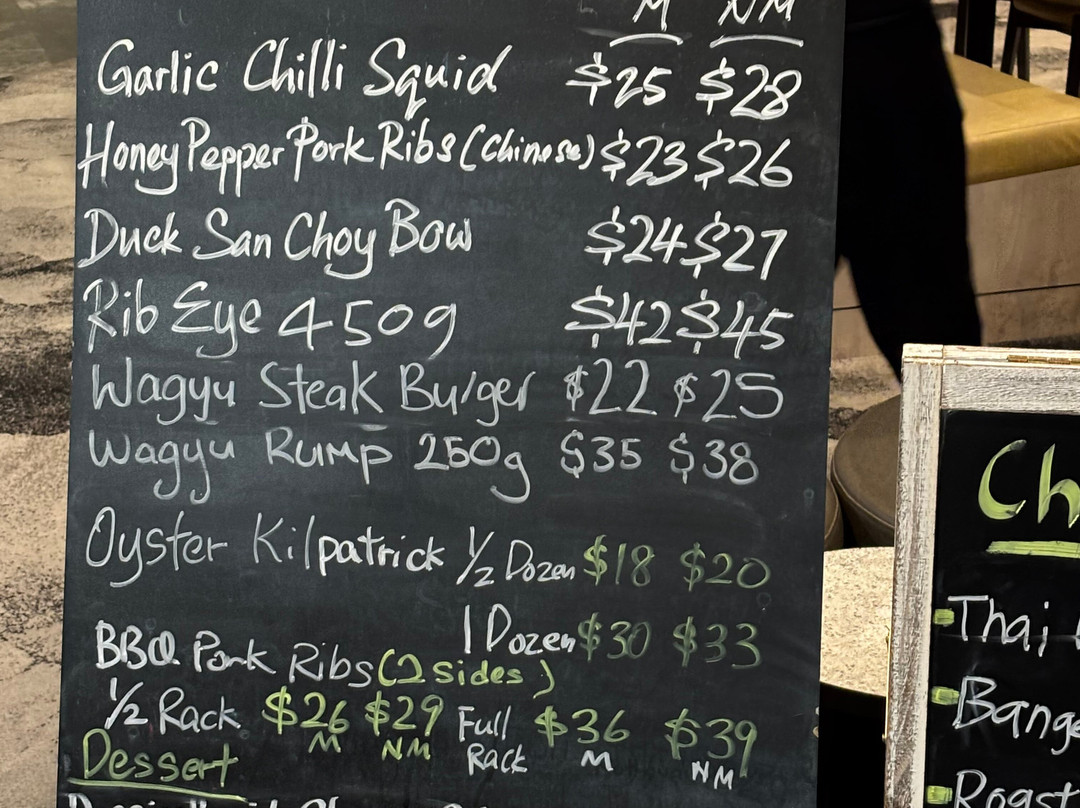 M NM
Garlic Chilli Squid $25 $28
Honey Pepper Pork Ribs (Chinese) $23 $26
Duck San Choy Bow $24 $27
Rib Eye 450g $42 $45
Wagyu Steak Burger $22 $25
Wagyu Rump 250g $35 $38
Oyster Kilpatrick 1/2 Dozen $18 $20
1 Dozen $30 $33
BBQ Pork Ribs (2 sides)
1/2 Rack $26 $29 Full Rack $36 $39
M NM M NM
Dessert
Ch
Thai
Bange
Roast